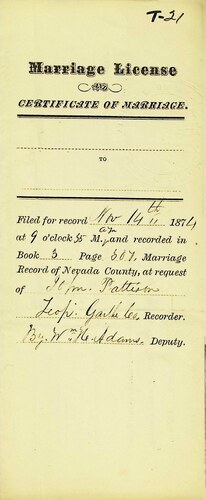 T-21
Marriage License
AND
CERTIFICATE OF MARRIAGE.
TO
Filed for record Nov 14th 1874
at 9 o'clock A M., and recorded in
Book 3 Page 367, Marriage
Record of Nevada County, at request
of Pattison
Recorder.
By Wm H. Adams. Deputy.